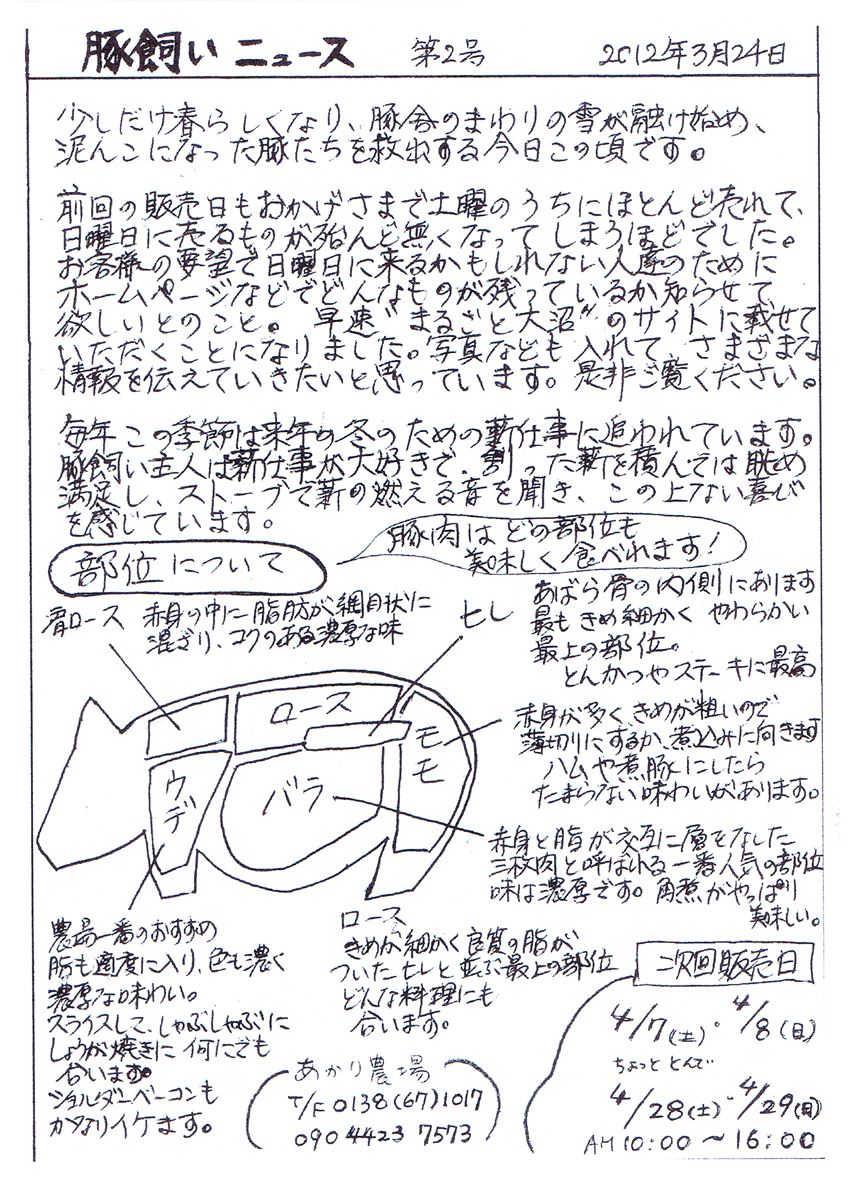 豚飼い ニュース 第2号 2012年3月24日
少しだけ春らしくなり、豚舎のまわりの雪が融け始め、
泥んこになった豚たちを救出する今日この頃です。
前回の販売日もおかげさまで土曜のうちにほとんど売れて、
日曜日に売るものが殆んど無くなってしまうほどでした。
お客様の要望で日曜日に来るかもしれない人達のために
ホームページなどでどんなものが残っているか知らせて
欲しいとのこと。早速"まるごと大沼"のサイトに載せて
いただくことになりました。写真なども入れて、さまざまな
情報を伝えていきたいと思っています。是非ご覧ください。
毎年この季節は来年の冬のための薪仕事に追われています。
豚飼い主人は薪仕事が大好きで、割った薪を積んでは眺め
満足し、ストーブで薪の燃える音を聞き、この上ない喜び
を感じています。
部位について
豚肉はどの部位も
美味しく食べれます!
肩ロース 赤身の中に脂肪が網目状に
混ざり、コクのある濃厚な味
ヒレ
あばら骨の内側にあります
最もきめ細かく やわらかい
最上の部位。
とんかつやステーキに最高
ロース
モモ
ウデ
バラ
赤身が多く、きめが粗いので
薄切りにするか、煮込みに向きます
ハムや煮豚にしたら
たまらない味わいがあります。
赤身と脂が交互に層をなした
三枚肉と呼ばれる一番人気の部位
味は濃厚です。角煮がやっぱり
美味しい。
農場一番のおすすめ
脂も適度に入り、色も濃く
濃厚な味わい。
スライスして、しゃぶしゃぶに
しょうが焼きに 何にでも
合います。
ショルダーベーコンも
かなりイケます。
ロース
きめが細かく良質の脂が
ついたヒレと並ぶ最上の部位
どんな料理にも
合います。
あかり農場
T/F 0138(67)1017
090 4423 7573
次回販売日
4/7(土)・4/8(日)
ちょっと とんで
4/28(土)・4/29(日)
AM10:00 ~ 16:00